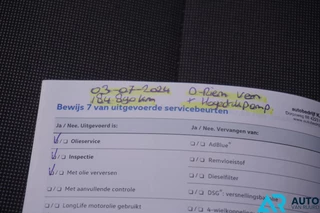 03-07-2024 D-Riem Verv
184.890 km + Hogedrukpomp.
Bewijs 7 van uitgevoerde servicebeurten
Ja / Nee. Uitgevoerd is: Ja / Nee. Vervangen van:
Olieservice AdBlue®
Inspectie Remvloeistof
Met olie verversen Dieselfilter
Met aansluitende controle DSG®-versnellingsbak
LongLife motorolie gebruikt
AUTO